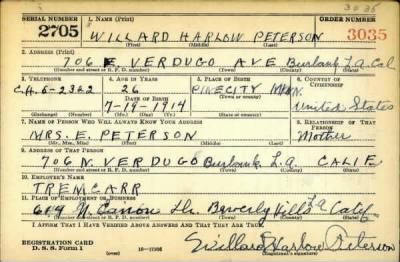 30 35
SERIAL NUMBER 1. NAME (Print) ORDER NUMBER
2705 WILLARD HARLOW PETERSON 3035
(First) (Middle) (Last)
2. ADDRESS (Print)
706 E. VERDUGO AVE Burbank L.A. Cal
(Number and street or R. F. D. number) (Town) (County) (State)
3. TELEPHONE 4. AGE IN YEARS 5. PLACE OF BIRTH 6. COUNTRY OF CITIZENSHIP
CH. 6-2362 26 PINECITY
DATE OF BIRTH (Town or county)
7-19-1914 MINN. United States
(Exchange) (Number) (Mo.) (Day) (Yr.) (State or country)
7. NAME OF PERSON WHO WILL ALWAYS KNOW YOUR ADDRESS 8. RELATIONSHIP OF THAT PERSON
MRS. E. PETERSON Mother
(Mr., Mrs., Miss) (First) (Middle) (Last)
9. ADDRESS OF THAT PERSON
706 N. VERDUGO Burbank L.A. CALIF.
(Number and street or R. F. D. number) (Town) (County) (State)
10. EMPLOYER'S NAME
TREMCARR
11. PLACE OF EMPLOYMENT OR BUSINESS
N. Canon Dr. Beverly Hills LA Calif
(Number and street or R. F. D. number) (Town) (County) (State)
I AFFIRM THAT I HAVE VERIFIED ABOVE ANSWERS AND THAT THEY ARE TRUE.
REGISTRATION CARD
D. S. S. Form 1 16-17105 Willard Harlow Peterson
(over)